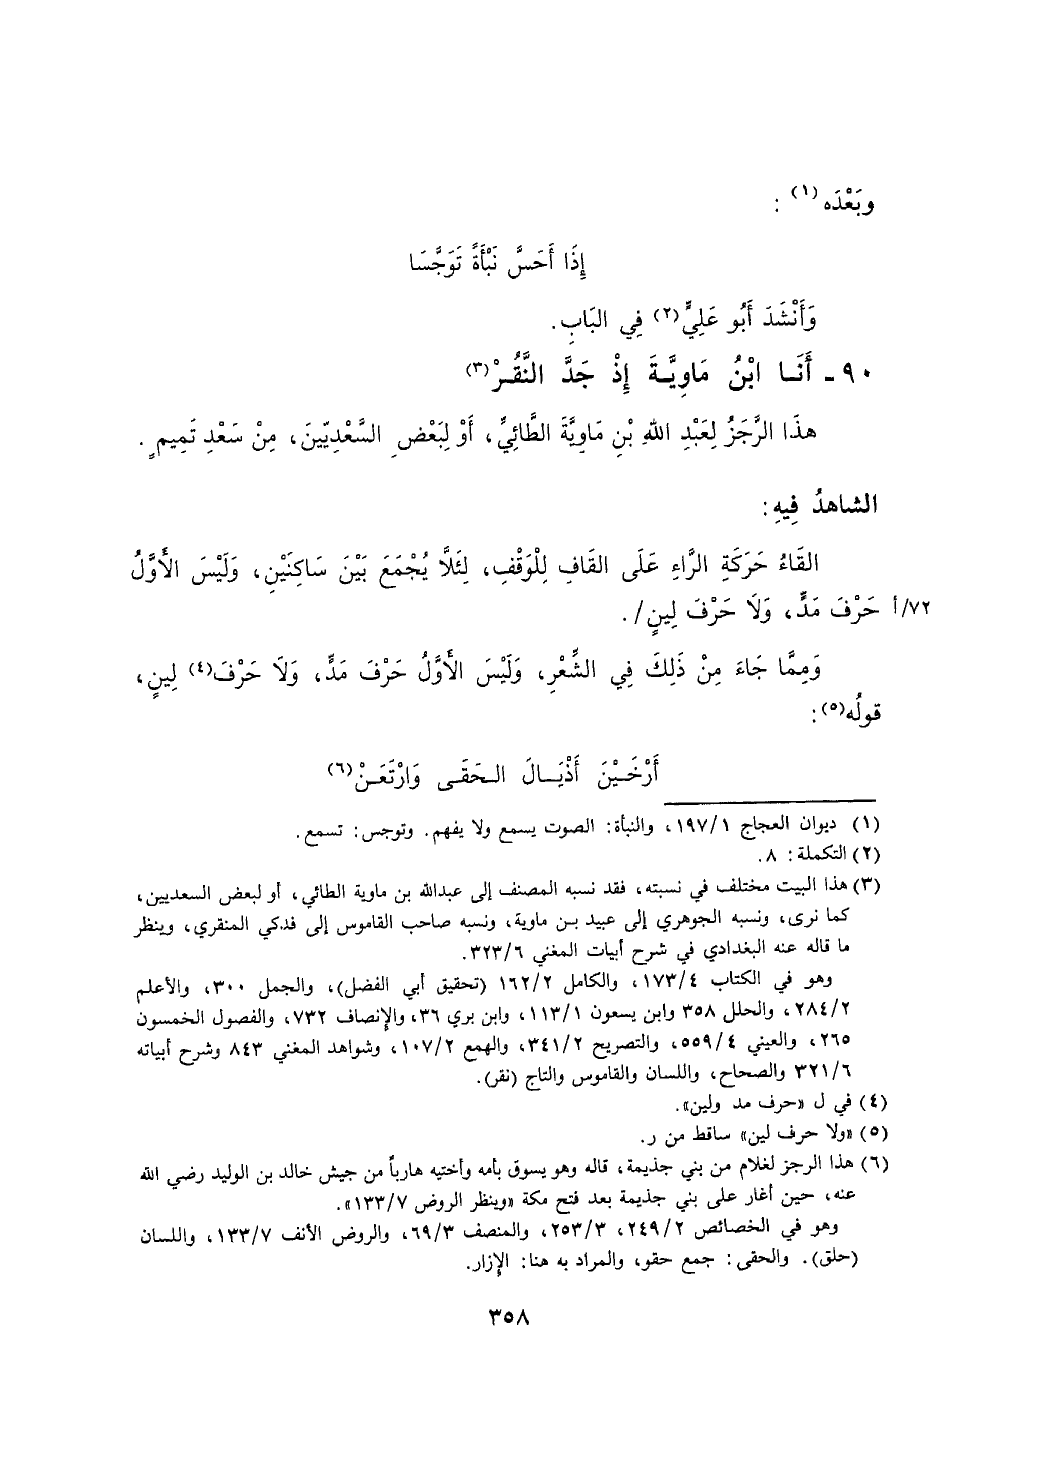 وبَعْدَه (١) :
إِذَا أَحَسَّ نَبْأَةً تَوَجَّسَا
وَأَنْشَدَ أَبُو عَلِيٍّ(٢) فِي البَابِ.
٩٠ - أَنَـا ابْنُ مَاوِيَّـةَ إِذْ جَدَّ النَّقُـرْ(٣)
هذَا الرَّجَزُ لِعَبْدِ اللهِ بْنِ مَاوِيَّةَ الطَّائِيِّ، أَوْ لِبَعْضِ السَّعْدِيّينَ، مِنْ سَعْدِ تَمِيمٍ .
الشاهدُ فِيهِ:
القَاءُ حَرَكَةِ الرَّاءِ عَلَى القَافِ لِلْوَقْفِ، لِئَلَّا يُجْمَعَ بَيْنَ سَاكِنَيْنِ، وَلَيْسَ الأَوَّلُ
٧٢/أ حَرْفَ مَدٍّ، وَلَا حَرْفَ لِينٍ/.
وَمِمَّا جَاءَ مِنْ ذَلِكَ فِي الشِّعْرِ، وَلَيْسَ الأَوَّلُ حَرْفَ مَدٍّ، وَلَا حَرْفَ(٤) لِينٍ،
قولُه(٥):
أَرْخَـيْنَ أَذْيَـالَ الـحَقَـى وَارْتَعَـنْ(٦)
(١) ديوان العجاج ١٩٧/١، والنبأة: الصوت يسمع ولا يفهم. وتوجس: تسمع.
(٢) التكملة: ٨.
(٣) هذا البيت مختلف في نسبته، فقد نسبه المصنف إلى عبدالله بن ماوية الطائي، أو لبعض السعديين،
كما نرى، ونسبه الجوهري إلى عبيد بـن ماوية، ونسبه صاحب القاموس إلى فدكي المنقري، وينظر
ما قاله عنه البغدادي في شرح أبيات المغني ٣٢٣/٦.
وهو في الكتاب ١٧٣/٤، والكامل ١٦٢/٢ (تحقيق أبي الفضل)، والجمل ٣٠٠، والأعلم
٢٨٤/٢، والحلل ٣٥٨ وابن يسعون ١١٣/١، وابن بري ٣٦، والإنصاف ٧٣٢، والفصول الخمسون
٢٦٥، والعيني ٥٥٩/٤، والتصريح ٣٤١/٢، والهمع ١٠٧/٢، وشواهد المغني ٨٤٣ وشرح أبياته
٣٢١/٦ والصحاح، واللسان والقاموس والتاج (نقر).
(٤) في ل «حرف مد ولين».
(٥) «ولا حرف لين» ساقط من ر.
(٦) هذا الرجز لغلام من بني جذيمة، قاله وهو يسوق بأمه وأختيه هارباً من جيش خالد بن الوليد رضي الله
عنه، حين أغار على بني جذيمة بعد فتح مكة «وينظر الروض ١٣٣/٧».
وهو في الخصائص ٢٤٩/٢، ٢٥٣/٣، والمنصف ٦٩/٣، والروض الأنف ١٣٣/٧، واللسان
(حلق). والحقى: جمع حقو، والمراد به هنا: الإزار.
٣٥٨